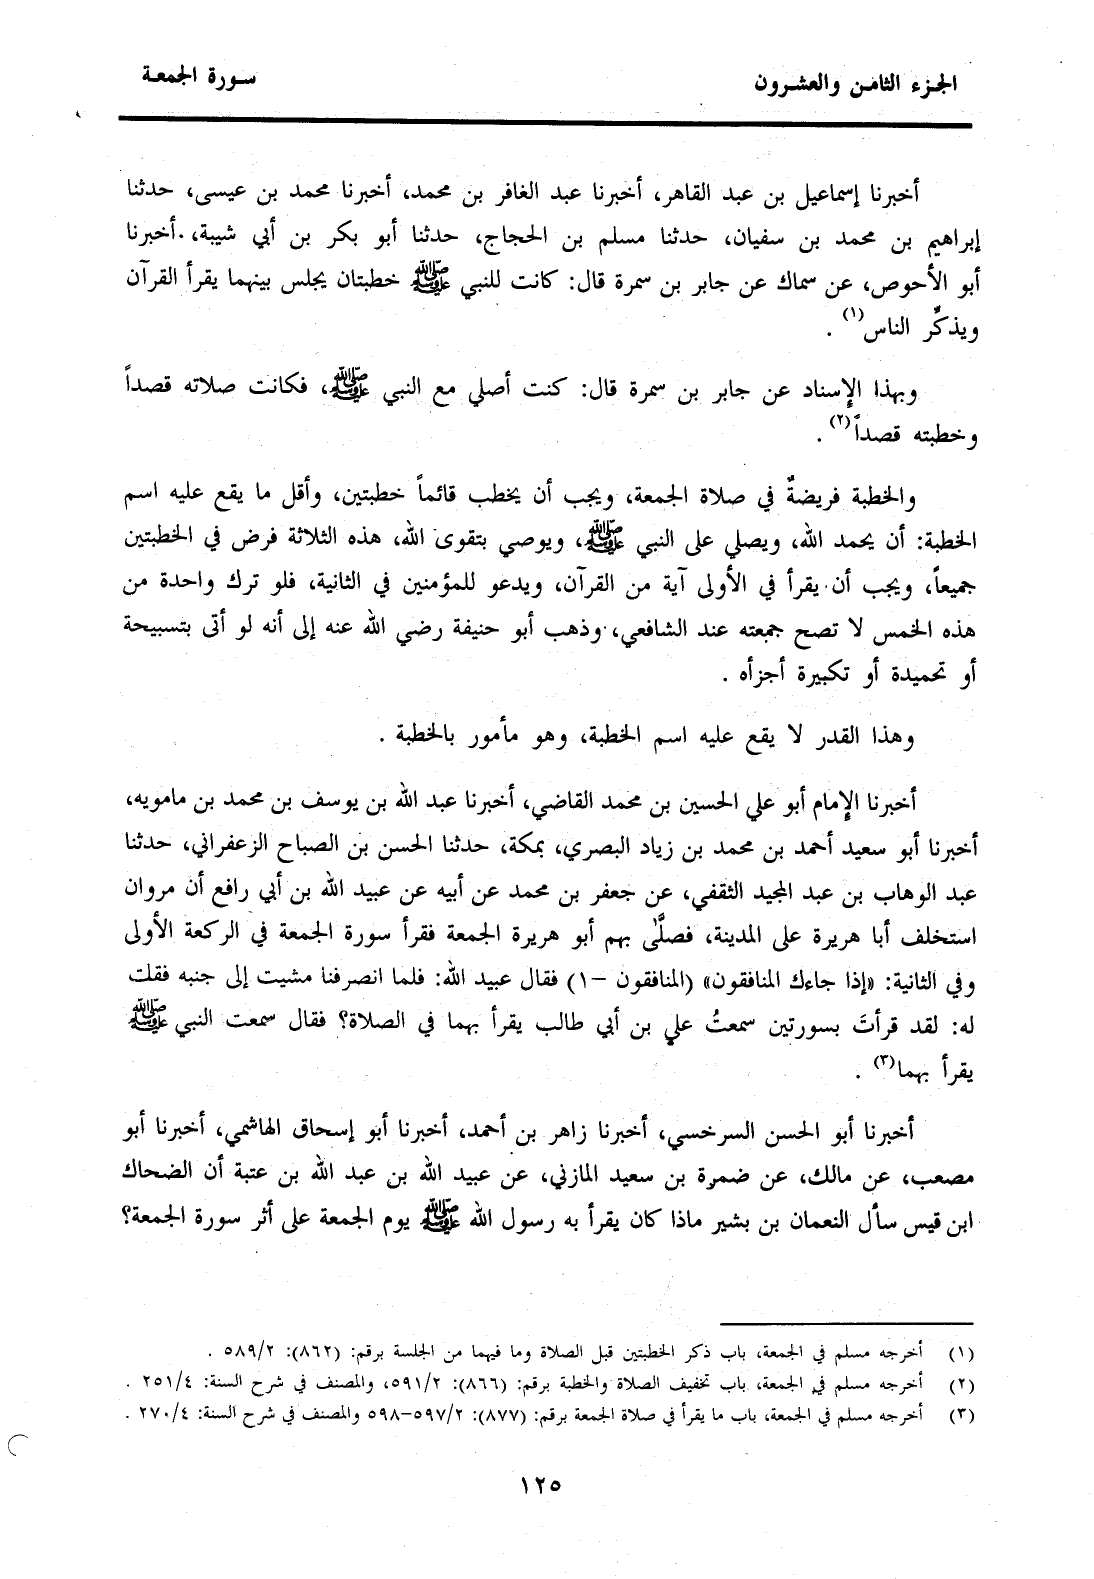 الجزء الثامن والعشرون
سورة الجمعة
أخبرنا إسماعيل بن عبد القاهر، أخبرنا عبد الغافر بن محمد، أخبرنا محمد بن عيسى، حدثنا
إبراهيم بن محمد بن سفيان، حدثنا مسلم بن الحجاج، حدثنا أبو بكر بن أبي شيبة، أخبرنا
أبو الأحوص، عن سماك عن جابر بن سمرة قال: كانت للنبي ﷺ خطبتان يجلس بينهما يقرأ القرآن
ويذكِّر الناس(١) .
وبهذا الإسناد عن جابر بن سمرة قال: كنت أصلي مع النبي ﷺ، فكانت صلاته قصداً
وخطبته قصداً(٢) .
والخطبة فريضةٌ في صلاة الجمعة، ويجب أن يخطب قائماً خطبتين، وأقل ما يقع عليه اسم
الخطبة: أن يحمد الله، ويصلي على النبي ﷺ، ويوصي بتقوى الله، هذه الثلاثة فرض في الخطبتين
جميعاً، ويجب أن يقرأ في الأولى آية من القرآن، ويدعو للمؤمنين في الثانية، فلو ترك واحدة من
هذه الخمس لا تصح جمعته عند الشافعي، وذهب أبو حنيفة رضي الله عنه إلى أنه لو أتى بتسبيحة
أو تحميدة أو تكبيرة أجزأه .
وهذا القدر لا يقع عليه اسم الخطبة، وهو مأمور بالخطبة .
أخبرنا الإمام أبو علي الحسين بن محمد القاضي، أخبرنا عبد الله بن يوسف بن محمد بن مامويه،
أخبرنا أبو سعيد أحمد بن محمد بن زياد البصري، بمكة، حدثنا الحسن بن الصباح الزعفراني، حدثنا
عبد الوهاب بن عبد المجيد الثقفي، عن جعفر بن محمد عن أبيه عن عبيد الله بن أبي رافع أن مروان
استخلف أبا هريرة على المدينة، فصلَّى بهم أبو هريرة الجمعة فقرأ سورة الجمعة في الركعة الأولى
وفي الثانية: «إذا جاءك المنافقون» (المنافقون -١) فقال عبيد الله: فلما انصرفنا مشيت إلى جنبه فقلت
له: لقد قرأتَ بسورتين سمعتُ علي بن أبي طالب يقرأ بهما في الصلاة؟ فقال سمعت النبي ﷺ
يقرأ بهما(٣) .
أخبرنا أبو الحسن السرخسي، أخبرنا زاهر بن أحمد، أخبرنا أبو إسحاق الهاشمي، أخبرنا أبو
مصعب، عن مالك، عن ضمرة بن سعيد المازني، عن عبيد الله بن عبد الله بن عتبة أن الضحاك
ابن قيس سأل النعمان بن بشير ماذا كان يقرأ به رسول الله ﷺ يوم الجمعة على أثر سورة الجمعة؟
(١) أخرجه مسلم في الجمعة، باب ذكر الخطبتين قبل الصلاة وما فيهما من الجلسة برقم: (٨٦٢): ٥٨٩/٢ .
(٢) أخرجه مسلم في الجمعة، باب تخفيف الصلاة والخطبة برقم: (٨٦٦): ٥٩١/٢، والمصنف في شرح السنة: ٢٥١/٤ .
(٣) أخرجه مسلم في الجمعة، باب ما يقرأ في صلاة الجمعة برقم: (٨٧٧): ٥٩٧/٢-٥٩٨ والمصنف في شرح السنة: ٢٧٠/٤ .
١٢٥